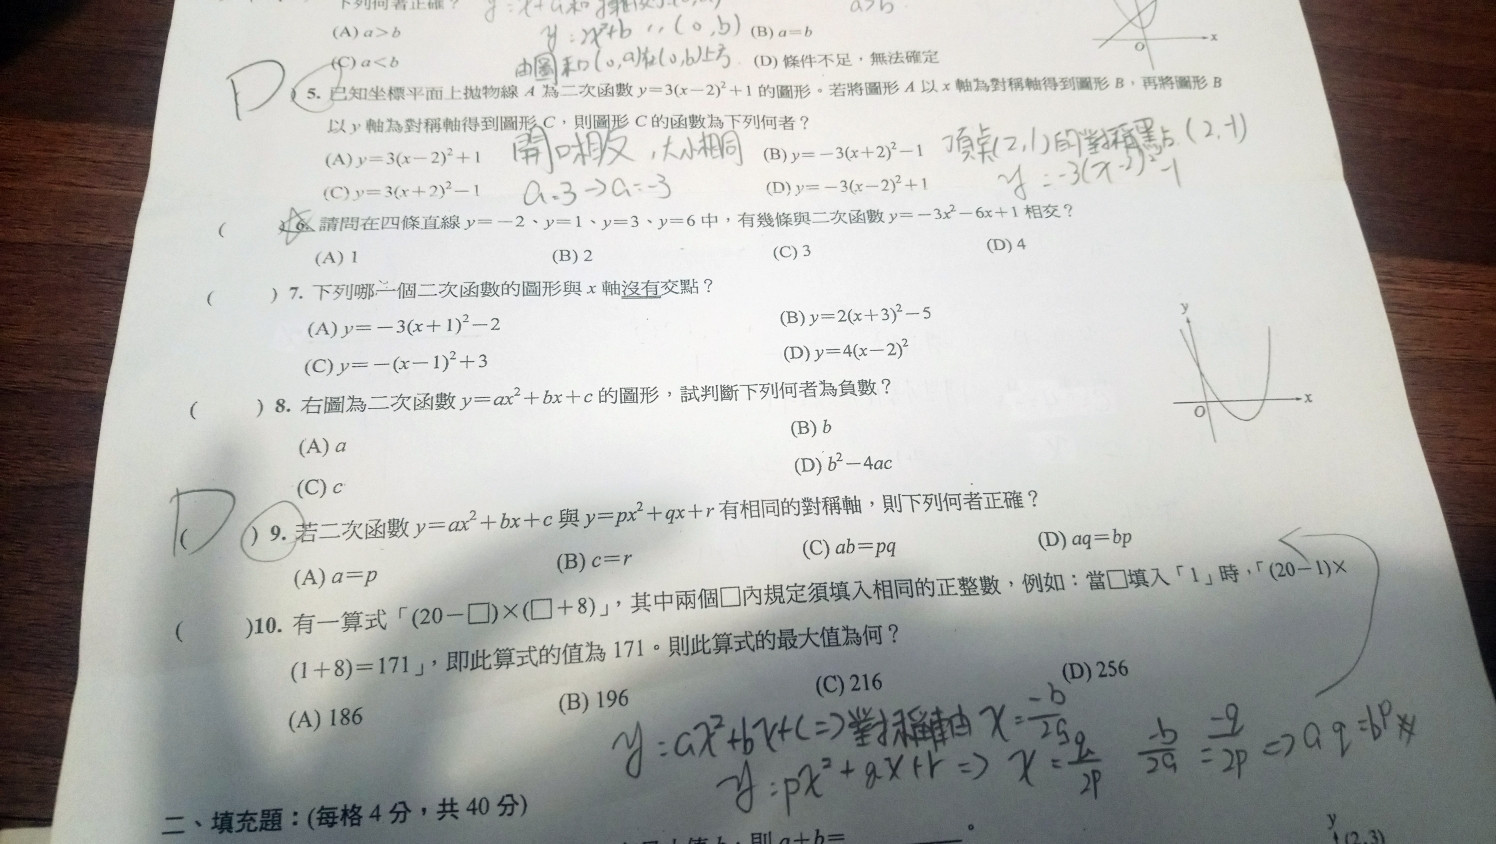 下列何者正確？
(A) a>b
y=2x²+b ,, (0,b)
(B) a=b
(C) a<b
由圖和(0,a)在(0,b)上方
(D) 條件不足，無法確定
a>b
O x
D
) 5. 已知坐標平面上拋物線 A 為二次函數 y=3(x−2)²+1 的圖形。若將圖形 A 以 x 軸為對稱軸得到圖形 B，再將圖形 B
以 y 軸為對稱軸得到圖形 C，則圖形 C 的函數為下列何者？
(A) y=3(x−2)²+1
開口相反，大小相同
(B) y=−3(x+2)²−1
頂點(2,1)的對稱點(2,-1)
(C) y=3(x+2)²−1
a=3→a=-3
(D) y=−3(x−2)²+1
y=-3(x-2)²-1
( 6. 請問在四條直線 y=−2、y=1、y=3、y=6 中，有幾條與二次函數 y=−3x²−6x+1 相交？
(A) 1 (B) 2 (C) 3 (D) 4
( ) 7. 下列哪一個二次函數的圖形與 x 軸沒有交點？
(A) y=−3(x+1)²−2 (B) y=2(x+3)²−5
(C) y=−(x−1)²+3 (D) y=4(x−2)²
y
O x
( ) 8. 右圖為二次函數 y=ax²+bx+c 的圖形，試判斷下列何者為負數？
(A) a (B) b
(C) c (D) b²−4ac
D
( ) 9. 若二次函數 y=ax²+bx+c 與 y=px²+qx+r 有相同的對稱軸，則下列何者正確？
(A) a=p (B) c=r (C) ab=pq (D) aq=bp
( )10. 有一算式「(20−□)×(□+8)」，其中兩個□內規定須填入相同的正整數，例如：當□填入「1」時，「(20−1)×
(1+8)=171」，即此算式的值為 171。則此算式的最大值為何？
(A) 186 (B) 196 (C) 216 (D) 256
y=ax²+bx+c=>對稱軸由 x=-b/2a
y=px²+qx+r => x=-q/2p
-b/2a = -q/2p => aq=bp
二、填充題：(每格 4 分，共 40 分)
則 a+b=＿＿＿＿。
y
(2,3)